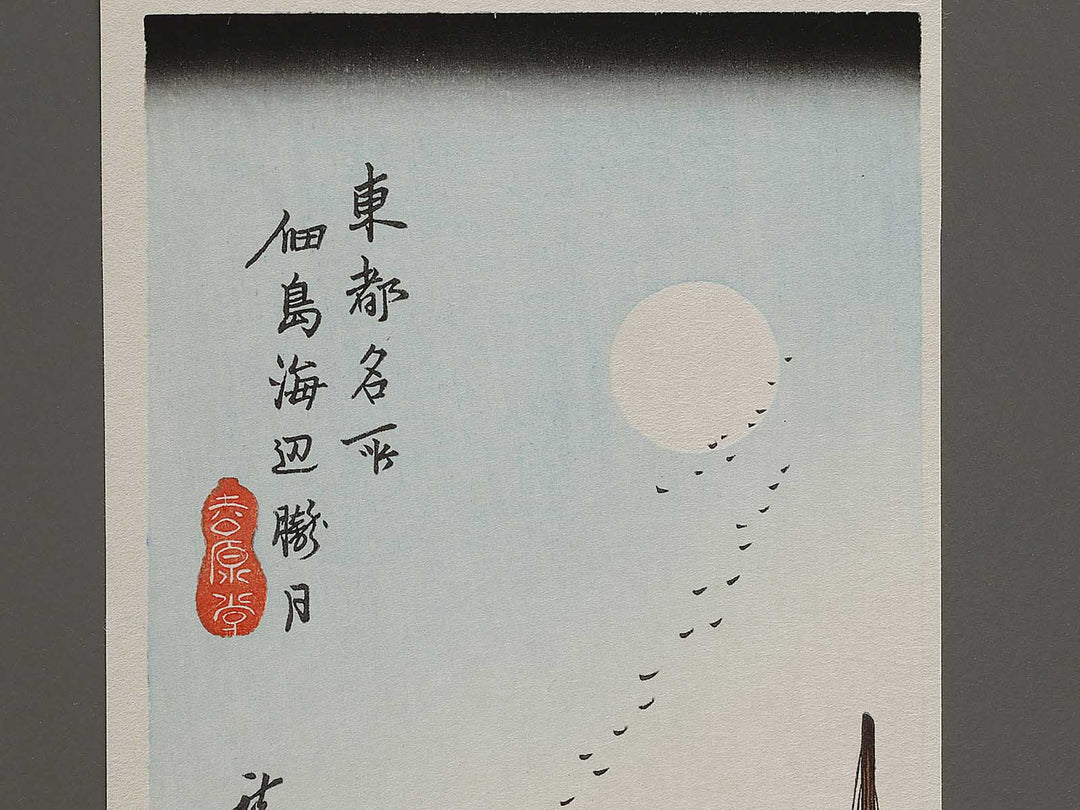 東都名所
佃島海辺朧月
吉原堂